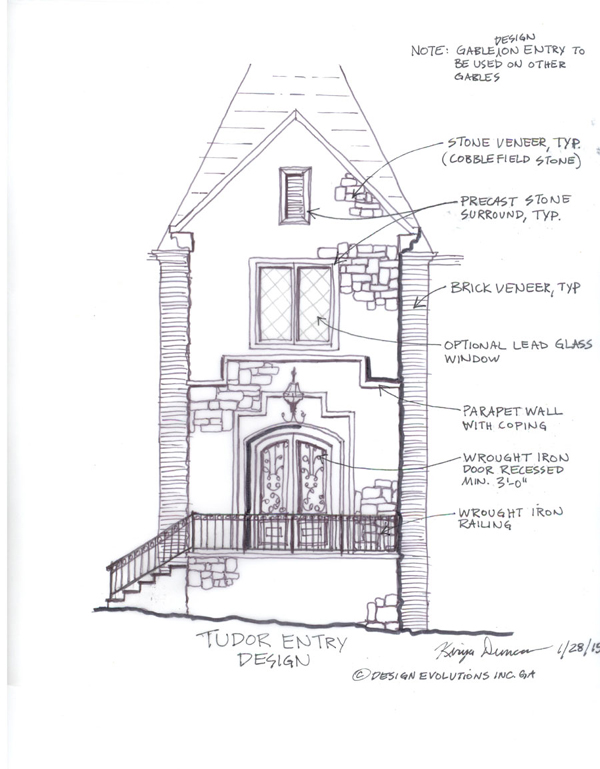 DESIGN
NOTE: GABLE ON ENTRY TO
BE USED ON OTHER
GABLES
STONE VENEER, TYP.
(COBBLEFIELD STONE)
PRECAST STONE
SURROUND, TYP.
BRICK VENEER, TYP
OPTIONAL LEAD GLASS
WINDOW
PARAPET WALL
WITH COPING
WROUGHT IRON
DOOR RECESSED
MIN. 3'-0"
WROUGHT IRON
RAILING
TUDOR ENTRY
DESIGN
Duncan 1/28/15
© DESIGN EVOLUTIONS INC. GA